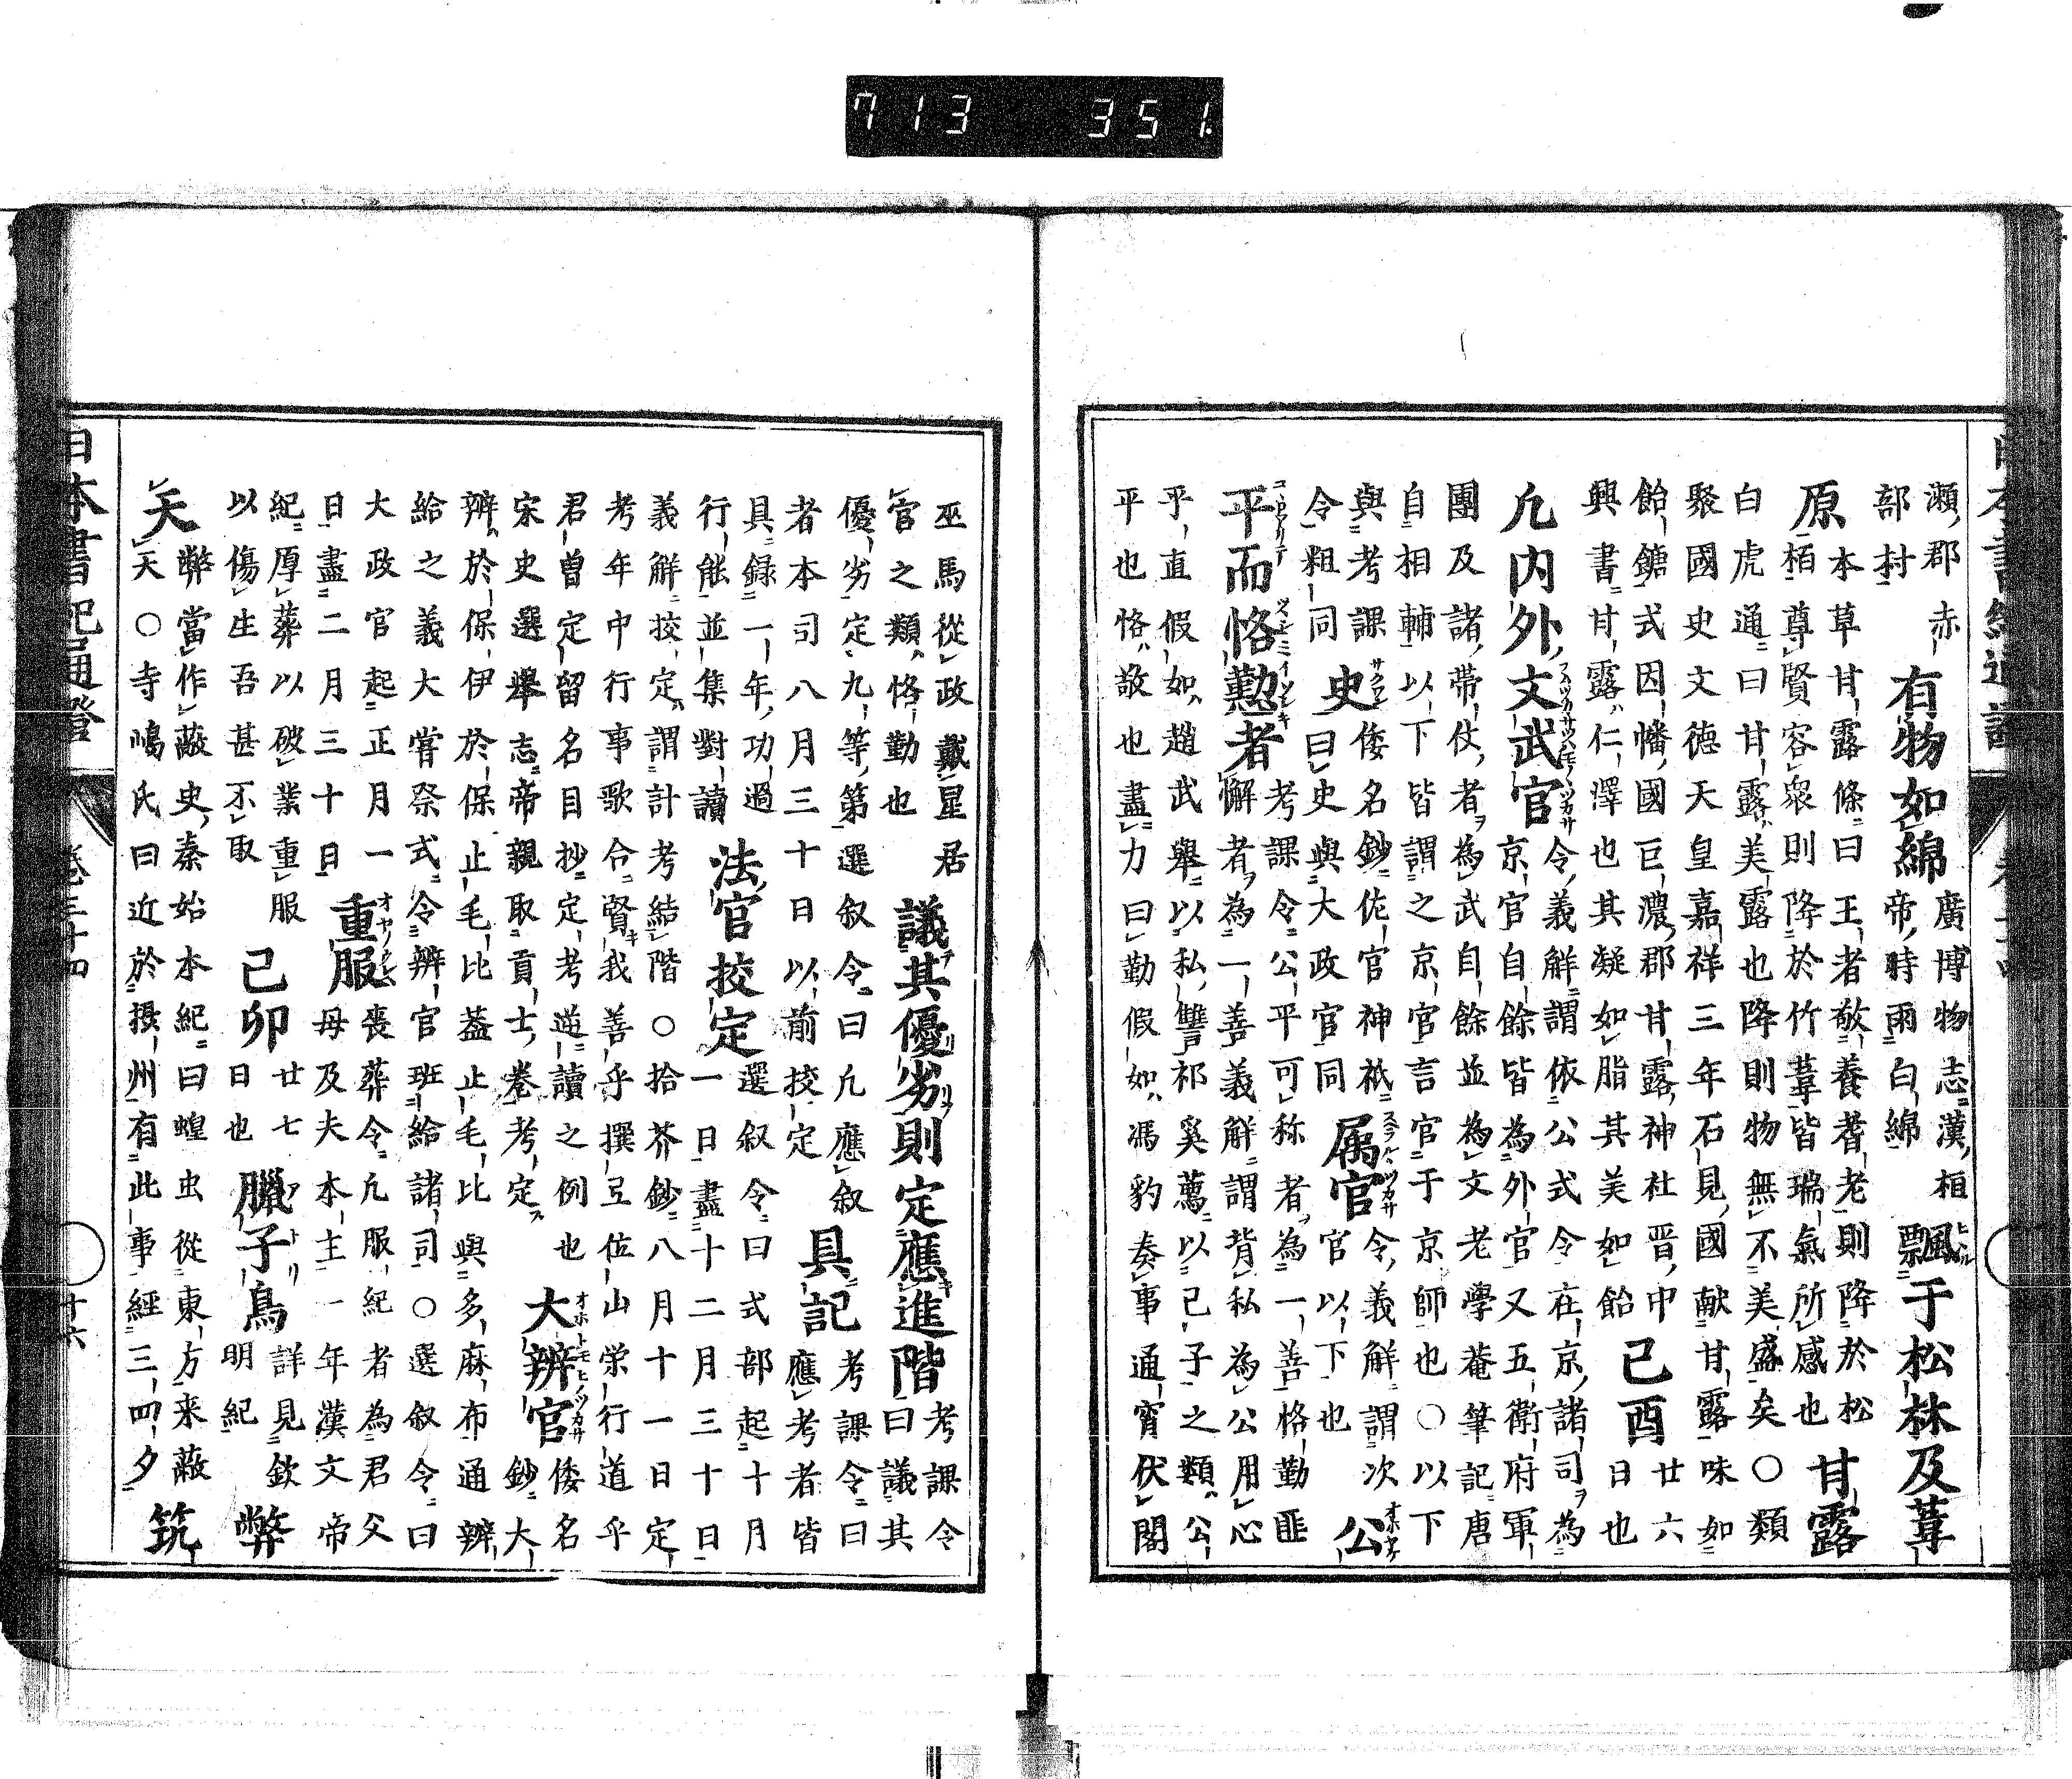 713 351
瀬郡赤
部村
有物如綿
廣博物志漢桓
帝時雨白綿
飄于松林及葦
原
本草甘露條曰王者敬養耆老則降於松
栢尊賢容衆則降於竹葦皆瑞氣所感也
甘露
白虎通曰甘露美露也降則物無不美盛矣○類
聚國史文徳天皇嘉祥三年石見國献甘露味如
飴餹式因幡國巨濃郡甘露神社晋中
興書甘露仁澤也其凝如脂其美如飴
己酉
廿六
日也
凢内外文武官
令義解謂依公式令在京諸司ヲ為
京官自餘皆為外官又五衛府軍
團及諸帯仗者ヲ為武自餘並為文老學菴筆記唐
自相輔以下皆謂之京官言官于京師也○以下
與考課
令粗同
史
倭名鈔佐官神祇
曰史與大政官同
属官
令義解謂次
官以下也
公
平而恪懃者
考課令公平可称者ヲ為一善恪勤匪
懈者ヲ為一善義解謂背私為公用心
平直假如趙武舉以私讐祁奚薦以己子之類公
平也恪敬也盡力曰勤假如馮豹奏事通宵伏閣
巫馬從政戴星居
官之類恪勤也
議其優劣則定應進階
考課令
曰議其
優劣定九等第選叙令曰凢應叙
者本司八月三十日以前挍定
具記
考課令曰
應考者皆
具録一年功過
行能並集對讀
法官挍定
選叙令曰式部起十月
一日盡十二月三十日
義解挍定謂計考結階○拾芥鈔八月十一日定
考年中行事歌合賢キ我善乎撰互位山栄行道乎
君曽定留名目抄定考逆讀之例也
宋史選舉志帝親取貢士巻考定
大辨官
倭名
鈔大
辨於保伊於保止毛比葢止毛比與多麻布通辨
給之義大嘗祭式令辨官班給諸司○選叙令曰
大政官起正月一
日盡二月三十日
重服
喪葬令凢服紀者為君父
母及夫本主一年漢文帝
紀厚葬以破業重服
以傷生吾甚不取
己卯
廿七
日也
臘子鳥
詳見欽
明紀
弊
天
弊當作蔽史秦始本紀曰蝗虫從東方来蔽
天○寺嶋氏曰近於摂州有此事經三四夕
筑
日本書紀通證 巻三十四 十六